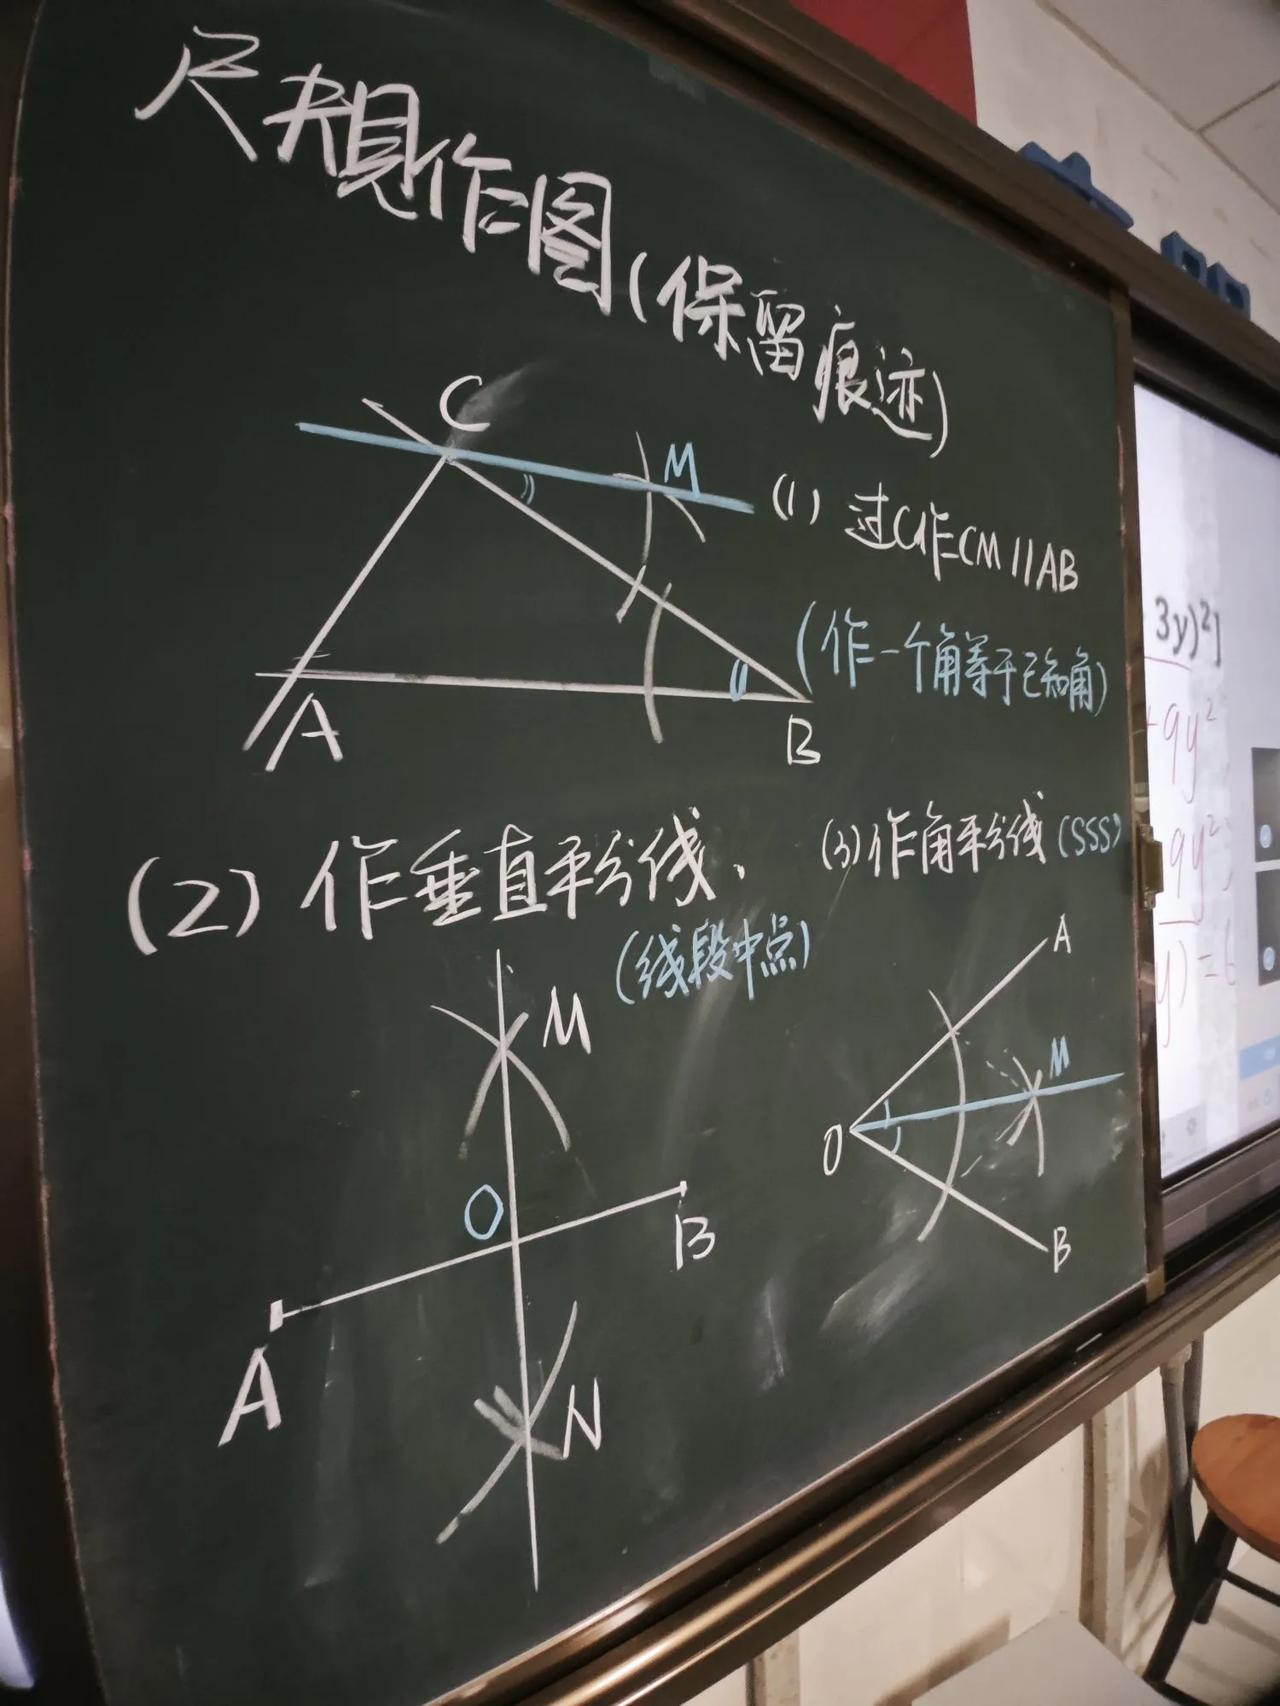 尺规作图(保留痕迹)
C
M
(1) 过C作CM//AB
(作一个角等于已知角)
A
B
(2) 作垂直平分线.
(线段中点)
(3)作角平分线(SSS)
M
O
B
A
N
A
M
O
B
3y)²]
+9y²
9y²
y)=6